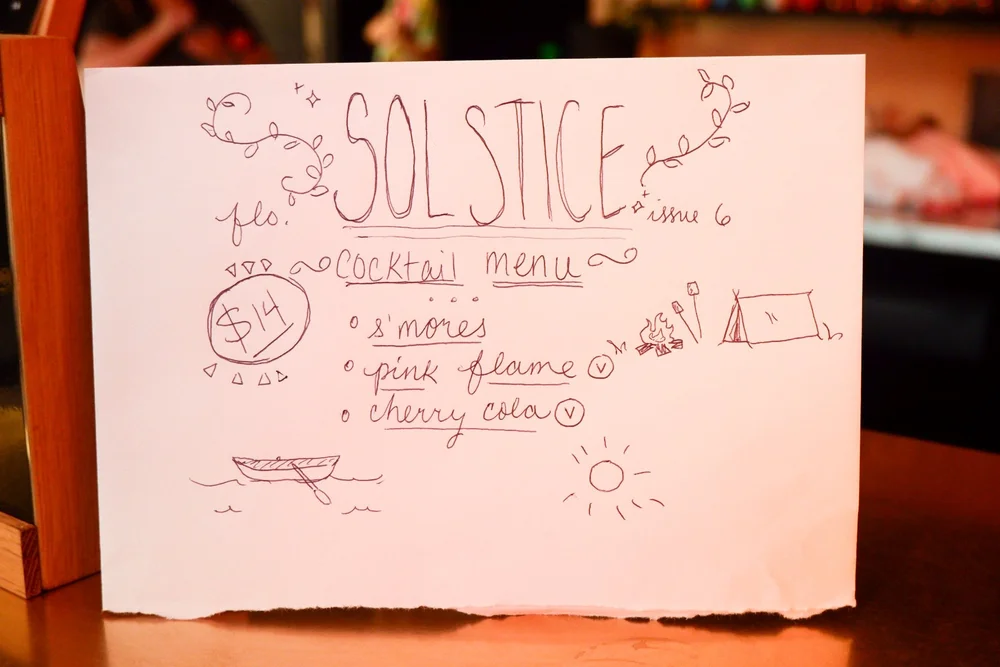 SOLSTICE
flo. issue 6
cocktail menu
$14
s'mores
pink flame V
cherry cola V